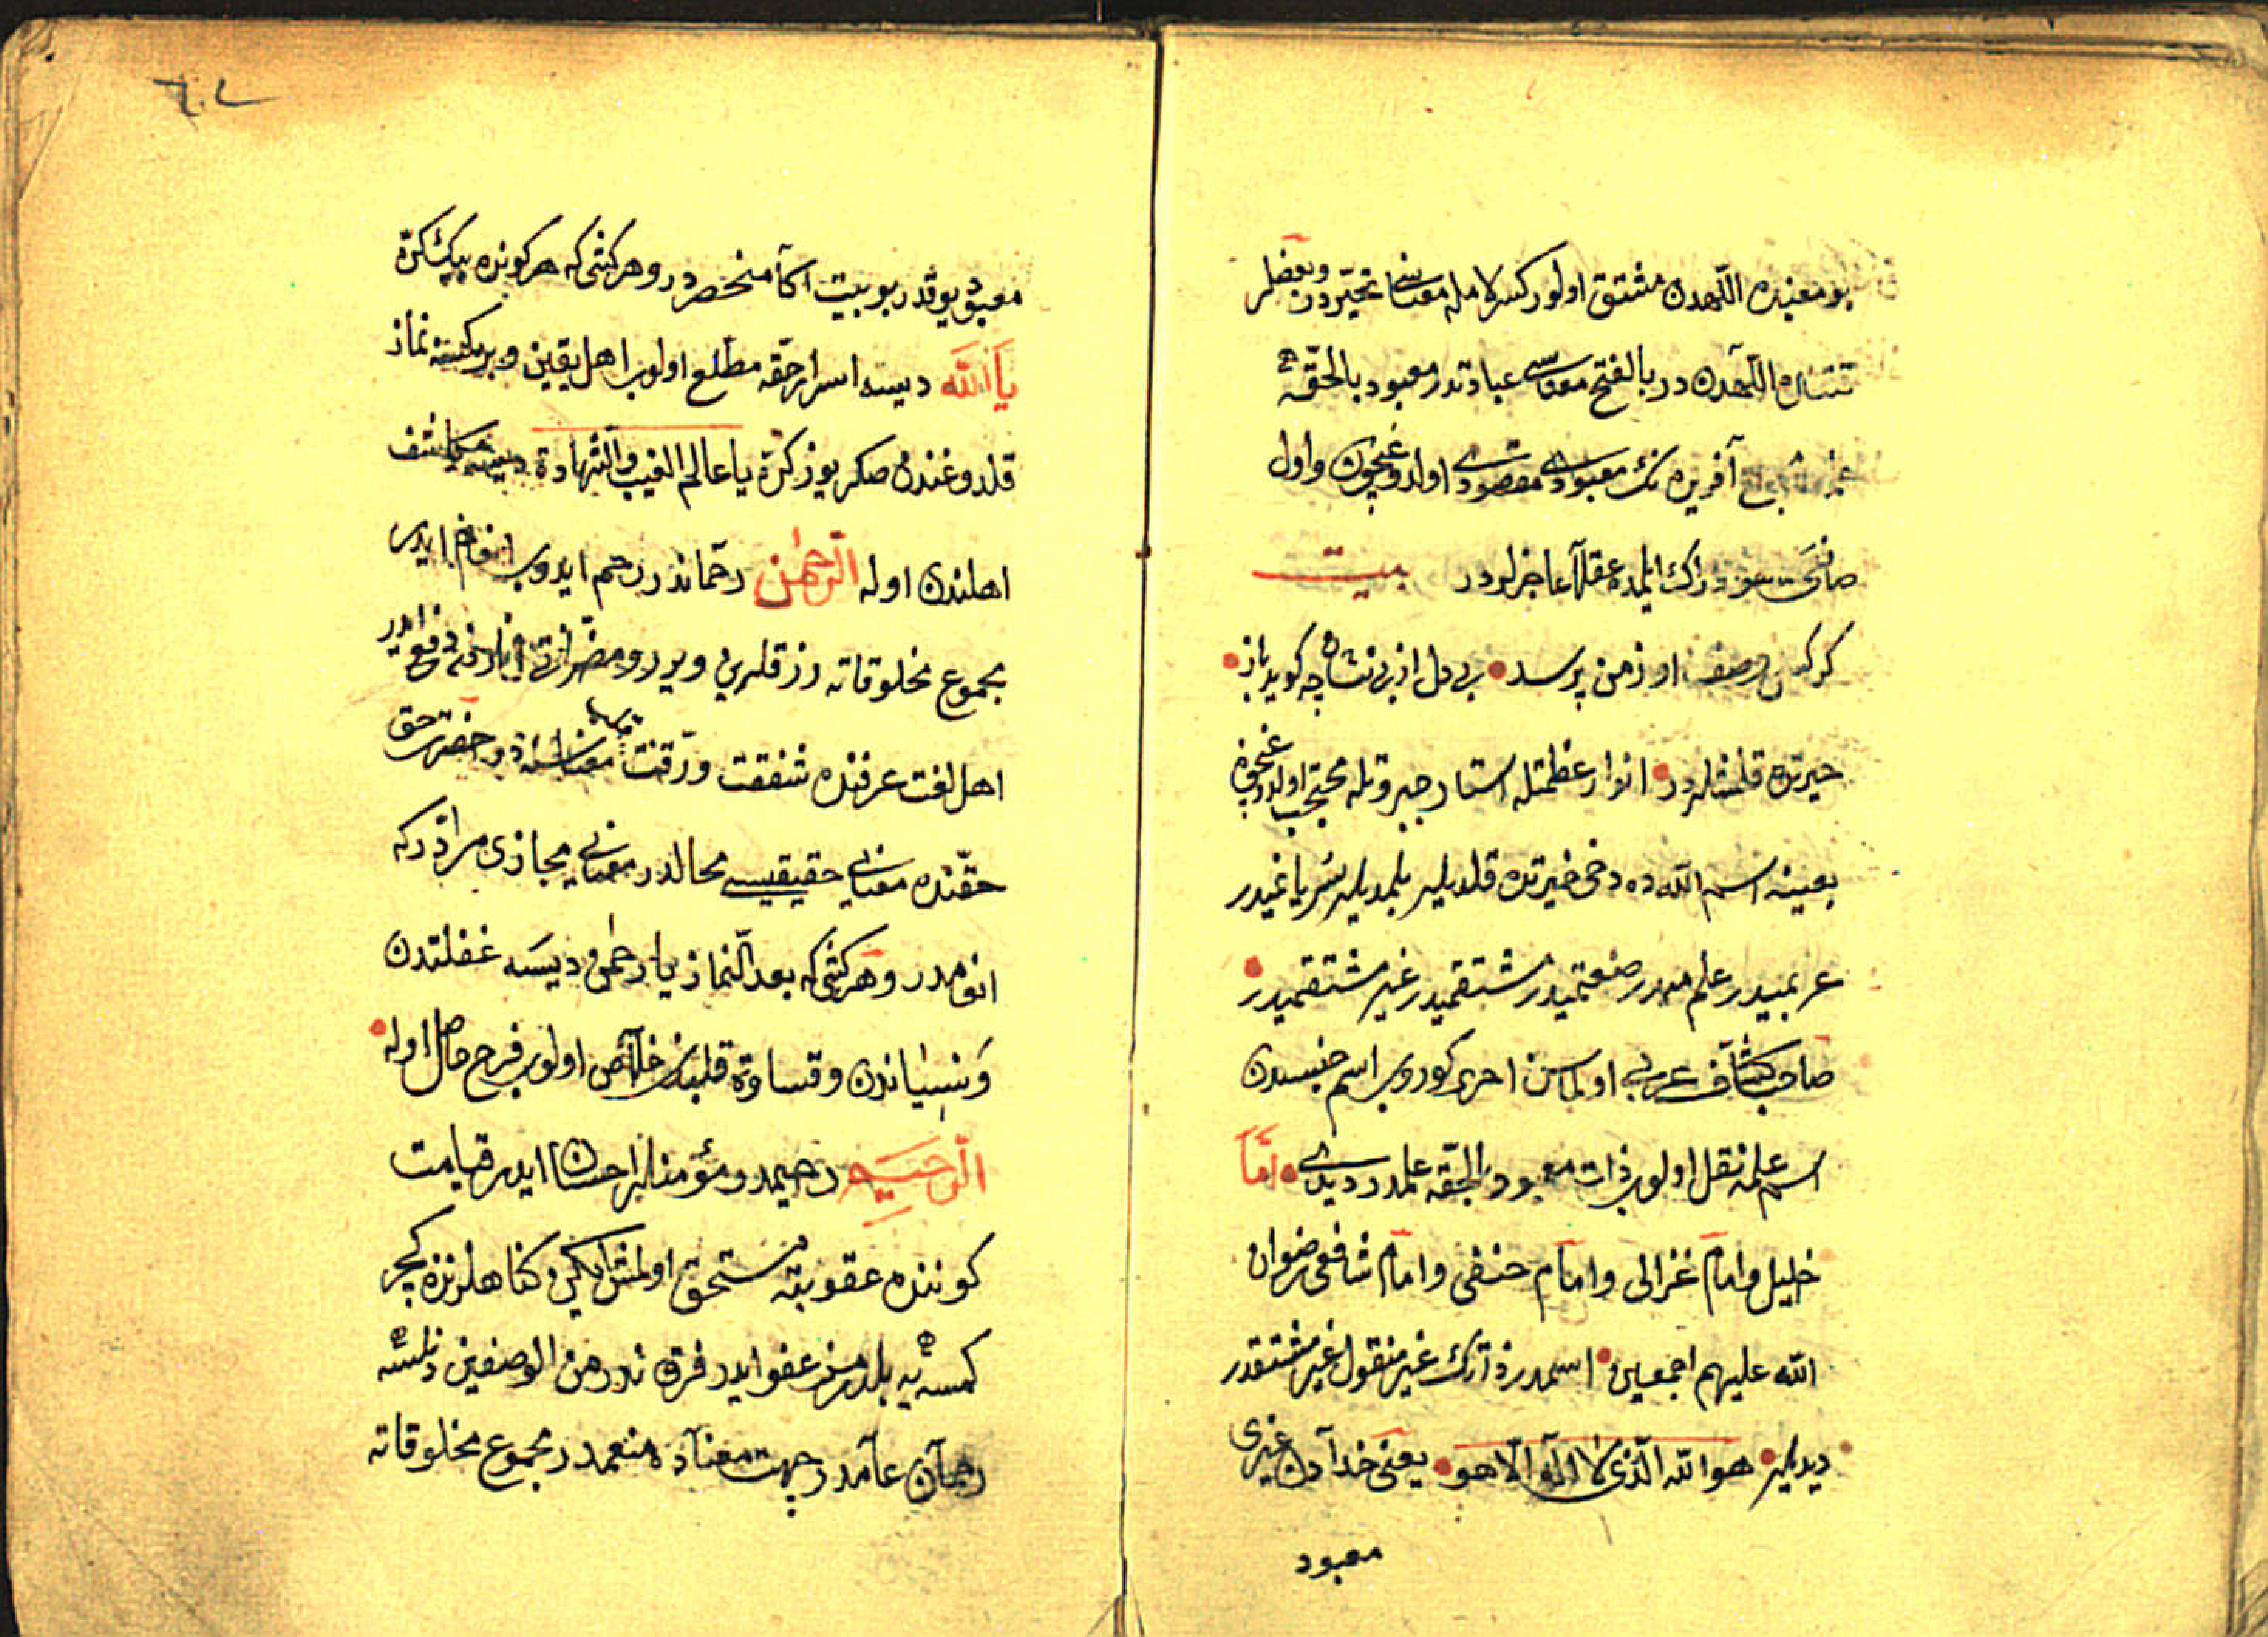 بو معنیده اللهدن مشتق اولور کسر لامله معناسی تحیّردر وبعضلر
اللهدن در بالفتح معناسی عبادتدر معبود بالحقّه
آفریده نك معبودی مقصودی اولدوغیچون واول
ایلمده عقللا عاجزلردر بیت
کر کسی وصف او زمن پرسد بی دل از بی نشان چه کوید باز
حیرتده قلمشلردر انوار عظمتله استار جبروتله محتجب اولدوغیچون
بعینه اسم الله ده دخی حیرتده قلدیلر بلمدیلر سریانیمیدر
عربیمیدر علممیدر صفتمیدر مشتقمیدر غیر مشتقمیدر
صاحب کشّاف عربی اولماسن احری کوروب اسم جنسدن
اسم علمه نقل اولوب ذات معبود بالحقّه علمدر دیدی امّا
خلیل وامام غزالی وامام حنفی وامام شافعی رضوان
الله علیهم اجمعین اسمدر ذاتك غیر منقول غیر مشتقدر
دیدیلر هو الله الّذی لا اله الّا هو یعنی خدا آدن غیری
معبود
معبود یوقدر ربوبیت اکا منحصردر وهر کشی که هر کونده بیك کرّه
یا الله دیسه اسرار حقّه مطّلع اولوب اهل یقین و بر کمسنه نماز
قلدوغندن صکره یوز کرّه یا عالم الغیب والشّهادة دیسه مکاشف
اهلندن اوله الرّحمٰن رحماندر رحم ایدوب انعام ایدر
مجموع مخلوقاته رزقلرین ویرر و مضرّاتی انلردن دفع ایدر
اهل لغت عرفنده شفقت ورقّت معناسنه در حضرت حق
حقّنده معنای حقیقیسی محالدر معنای مجازی مراددر که
انعامدر وهر کشی که بعد النّماز یا رحمٰن دیسه غفلتدن
ونسیاندن وقساوة قلبدن خلاص اولوب فرح حاصل اوله
الرّحیم رحیمدر مؤمنلره احسان ایدر قیامت
کوننده عقوبته مستحق اولمش ایکن کناهلرندن کچر
کمسه یه بلدرمز عفو ایدر فرق ندر من الوصفین دنلسه
رحمان عامدر جهت معناده منعمدر مجموع مخلوقاته